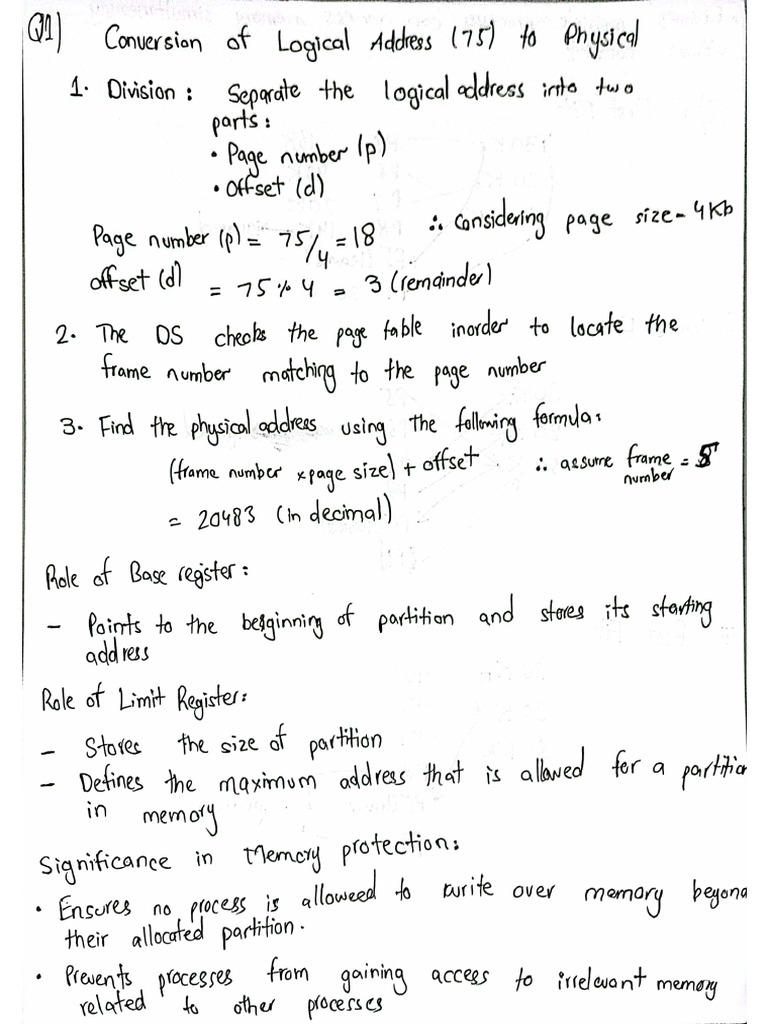 Q1) Conversion of Logical Address (75) to Physical
1. Division : Separate the logical address into two
parts :
• Page number (p)
• Offset (d)
Page number (p) = 75/4 = 18 ∴ Considering page size - 4Kb
offset (d) = 75 % 4 = 3 (remainder)
2. The OS checks the page table inorder to locate the
frame number matching to the page number
3. Find the physical address using the following formula:
(frame number x page size) + offset ∴ assume frame number = 5
= 20483 (in decimal)
Role of Base register :
- Points to the beginning of partition and stores its starting
address
Role of Limit Register:
- Stores the size of partition
- Defines the maximum address that is allowed for a partition
in memory
Significance in Memory protection:
• Ensures no process is alloweed to write over memory beyond
their allocated partition.
• Prevents processes from gaining access to irrelevant memory
related to other processes